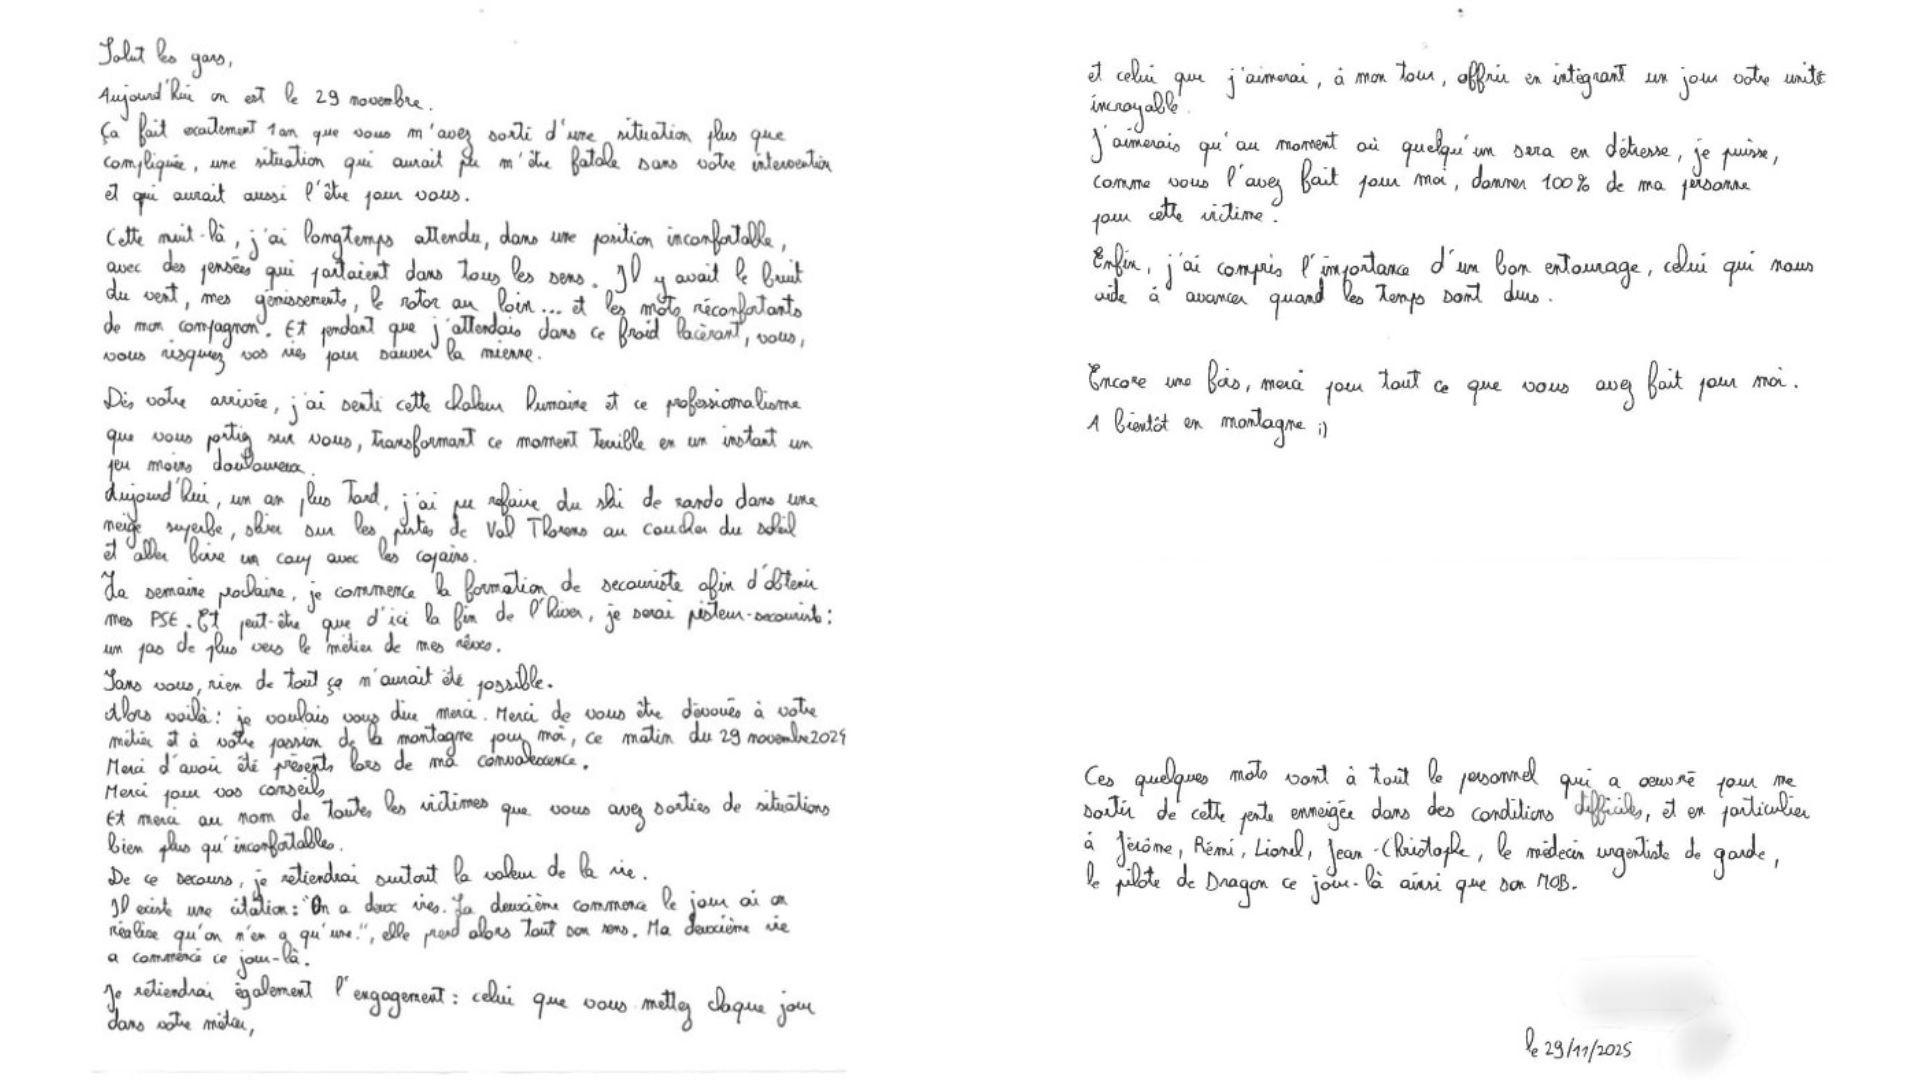 Salut les gars,
Aujourd'hui on est le 29 novembre.
Ça fait exactement 1 an que vous m'avez sorti d'une situation plus que
compliquée, une situation qui aurait pu m'être fatale sans votre intervention
et qui aurait aussi l'être pour vous.
Cette nuit-là, j'ai longtemps attendu, dans une position inconfortable,
avec des pensées qui partaient dans tous les sens. Il y avait le bruit
du vent, mes gémissements, le rotor au loin... et les mots réconfortants
de mon compagnon. Et pendant que j'attendais dans ce froid lacérant, vous,
vous risquiez vos vies pour sauver la mienne.
Dès votre arrivée, j'ai senti cette chaleur humaine et ce professionalisme
que vous portiez sur vous, transformant ce moment terrible en un instant un
peu moins douloureux.
Aujourd'hui, un an plus tard, j'ai pu refaire du ski de rando dans une
neige superbe, skier sur les pistes de Val Thorens au coucher du soleil
et aller boire un coup avec les copains.
La semaine prochaine, je commence la formation de secouriste afin d'obtenir
mes PSE. Et peut-être que d'ici la fin de l'hiver, je serai pisteur-secouriste :
un pas de plus vers le métier de mes rêves.
Sans vous, rien de tout ça n'aurait été possible.
Alors voilà : je voulais vous dire merci. Merci de vous être dévoués à votre
métier et à votre passion de la montagne pour moi, ce matin du 29 novembre 2024
Merci d'avoir été présents lors de ma convalescence.
Merci pour vos conseils
Et merci au nom de toutes les victimes que vous avez sorties de situations
bien plus qu'inconfortables.
De ce secours, je retiendrai surtout la valeur de la vie.
Il existe une citation : "On a deux vies. La deuxième commence le jour où on
réalise qu'on n'en a qu'une.", elle prend alors tout son sens. Ma deuxième vie
a commencé ce jour-là.
Je retiendrai également l'engagement : celui que vous mettez chaque jour
dans votre métier,
et celui que j'aimerai, à mon tour, offrir en intégrant un jour votre unité
incroyable.
J'aimerais qu'au moment où quelqu'un sera en détresse, je puisse,
comme vous l'avez fait pour moi, donner 100% de ma personne
pour cette victime.
Enfin, j'ai compris l'importance d'un bon entourage, celui qui nous
aide à avancer quand les temps sont durs.
Encore une fois, merci pour tout ce que vous avez fait pour moi.
A bientôt en montagne ;)
Ces quelques mots vont à tout le personnel qui a oeuvré pour me
sortir de cette pente enneigée dans des conditions difficiles, et en particulier
à Jérôme, Rémi, Lionel, Jean-Christophe, le médecin urgentiste de garde,
le pilote de Dragon ce jour-là ainsi que son MOB.
le 29/11/2025